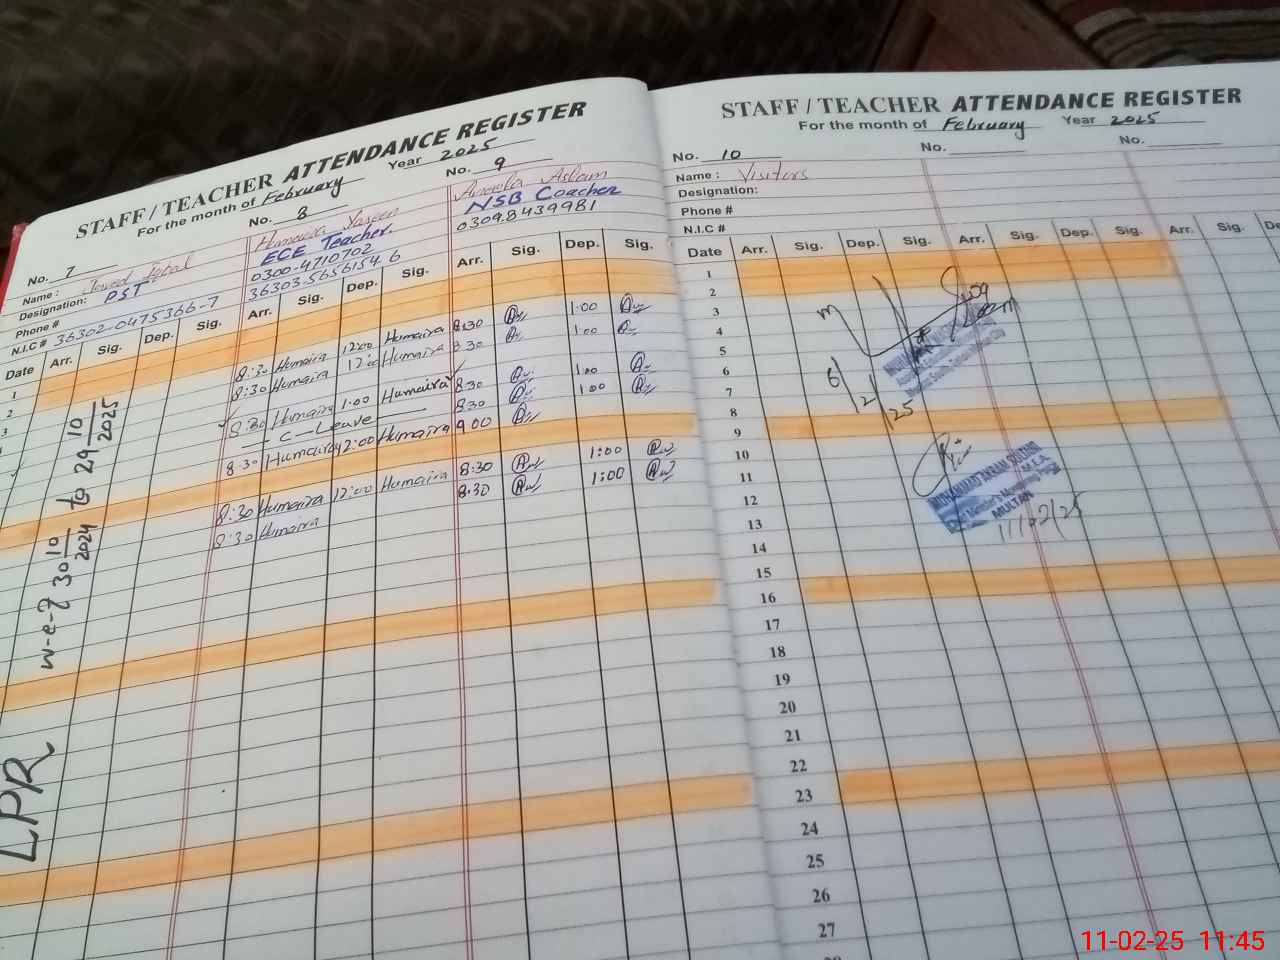 STAFF / TEACHER ATTENDANCE REGISTER
For the month of February Year 2025
No. 7 No. 8 No. 9
Name: Javed Iqbal Humaira Yaseen Aneela Aslam
Designation: PST ECE Teacher. NSB Coacher
Phone # 0300-4710702 03098439981
N.I.C # 36302-0475366-7 36303-5656154-6
Date Arr. Sig. Dep. Sig. Arr. Sig. Dep. Sig. Arr. Sig. Dep. Sig.
1
2
3
8:30 Humaira 12:00 Humaira 8:30 1:00
8:30 Humaira 12:00 Humaira 8:30 1:00
8:30 Humaira 1:00 Humaira 8:30 1:00
C-Leave 8:30 1:00
8:30 Humaira 12:00 Humaira 9:00
8:30 Humaira 12:00 Humaira 8:30 1:00
8:30 Humaira 8:30 1:00
w-e-f 30 10 2024 to 29 10 2025
LPR
STAFF / TEACHER ATTENDANCE REGISTER
For the month of February Year 2025
No. 10 No. No.
Name: Visitors
Designation:
Phone #
N.I.C #
Date Arr. Sig. Dep. Sig. Arr. Sig. Dep. Sig. Arr. Sig. De
1
2
3
4
5
6
7
6/2/25
8
9
10
11
12
MULTAN
13
11/02/25
14
15
16
17
18
19
20
21
22
23
24
25
26
27
11-02-25 11:45